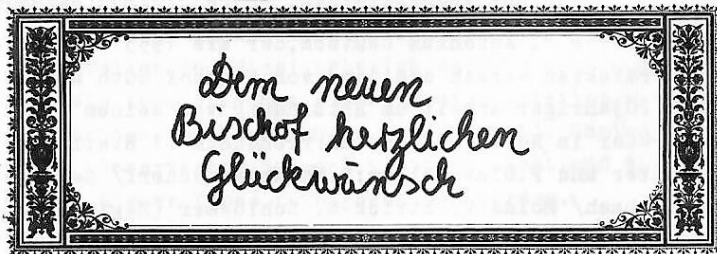 Dem neuen
Bischof herzlichen
Glückwünsch